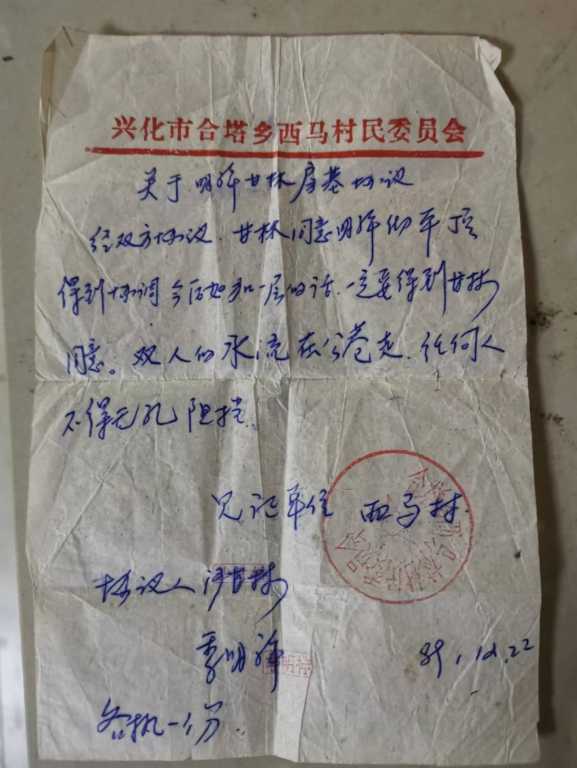 兴化市合塔乡西马村民委员会
关于明祥甘林房基协议
经双方协议.甘林同意明祥做平顶
得到协调今后如加一层的话.一定要得到甘林
同意。双人的水流在公巷走.任何人
不得无孔阻挡.
见证单位 西马村
协议人 甘林
季明祥
各执一份.